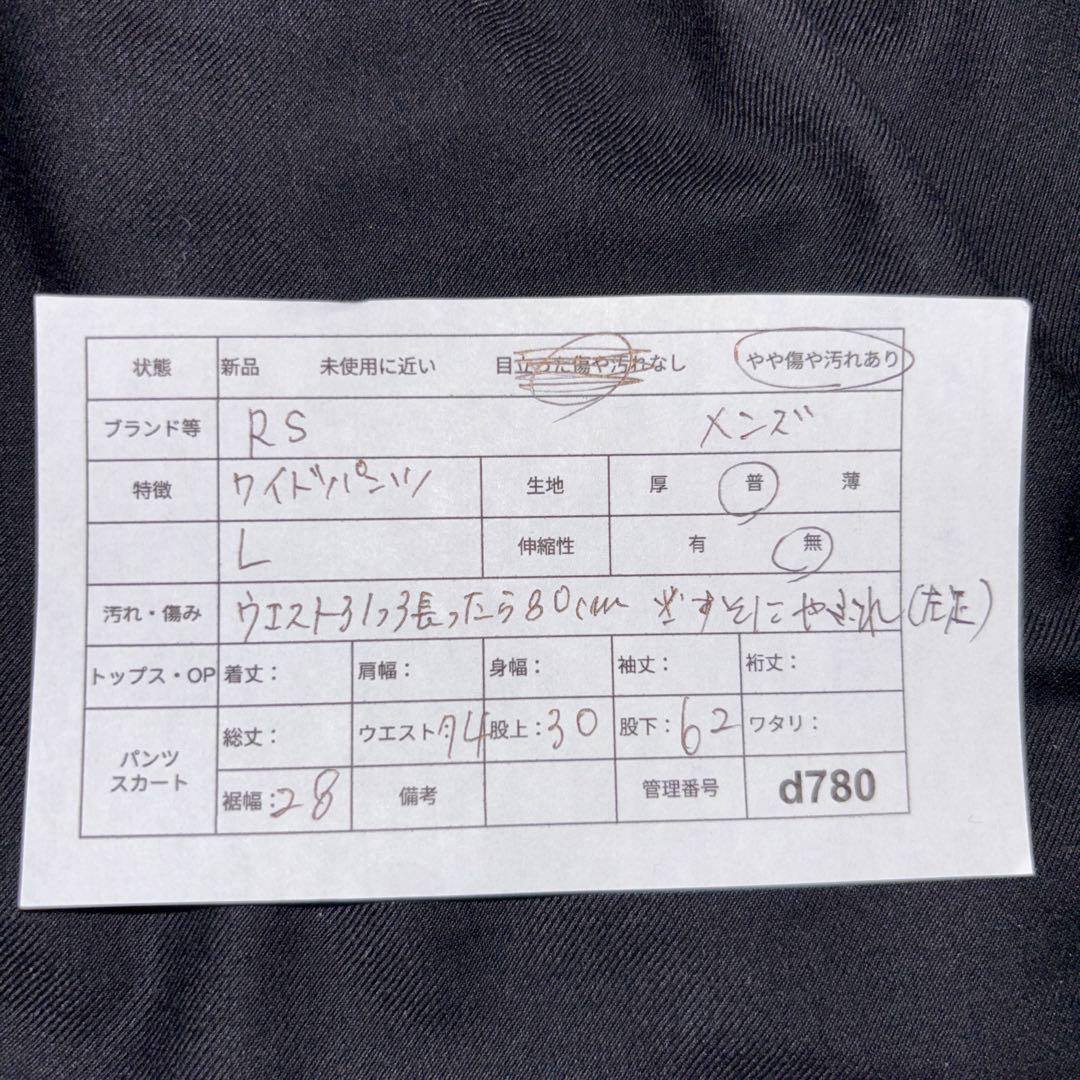 状態 新品 未使用に近い 目立った傷や汚れなし やや傷や汚れあり
ブランド等 RS メンズ
特徴 ワイドパンツ 生地 厚 普 薄
L 伸縮性 有 無
汚れ・傷み ウエスト引っ張ったら80cm すそにやぶれ(左足)
トップス・OP 着丈: 肩幅: 身幅: 袖丈: 裄丈:
パンツ スカート
総丈: ウエスト:74 股上:30 股下:62 ワタリ:
裾幅:28 備考 管理番号 d780